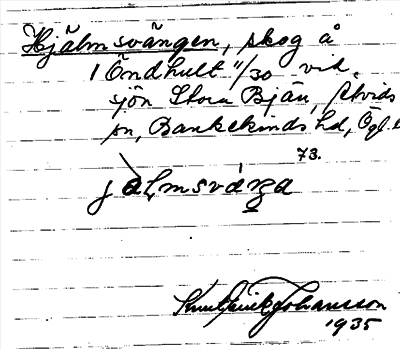 Hjälmsvängen, skog å
1 Öndhult 11/30 vid
sjön Stora Bjän, Åtvids
sn, Bankekinds hd, Ögl.
73.
jàl,msvá̱ŋa
Johansson
1935